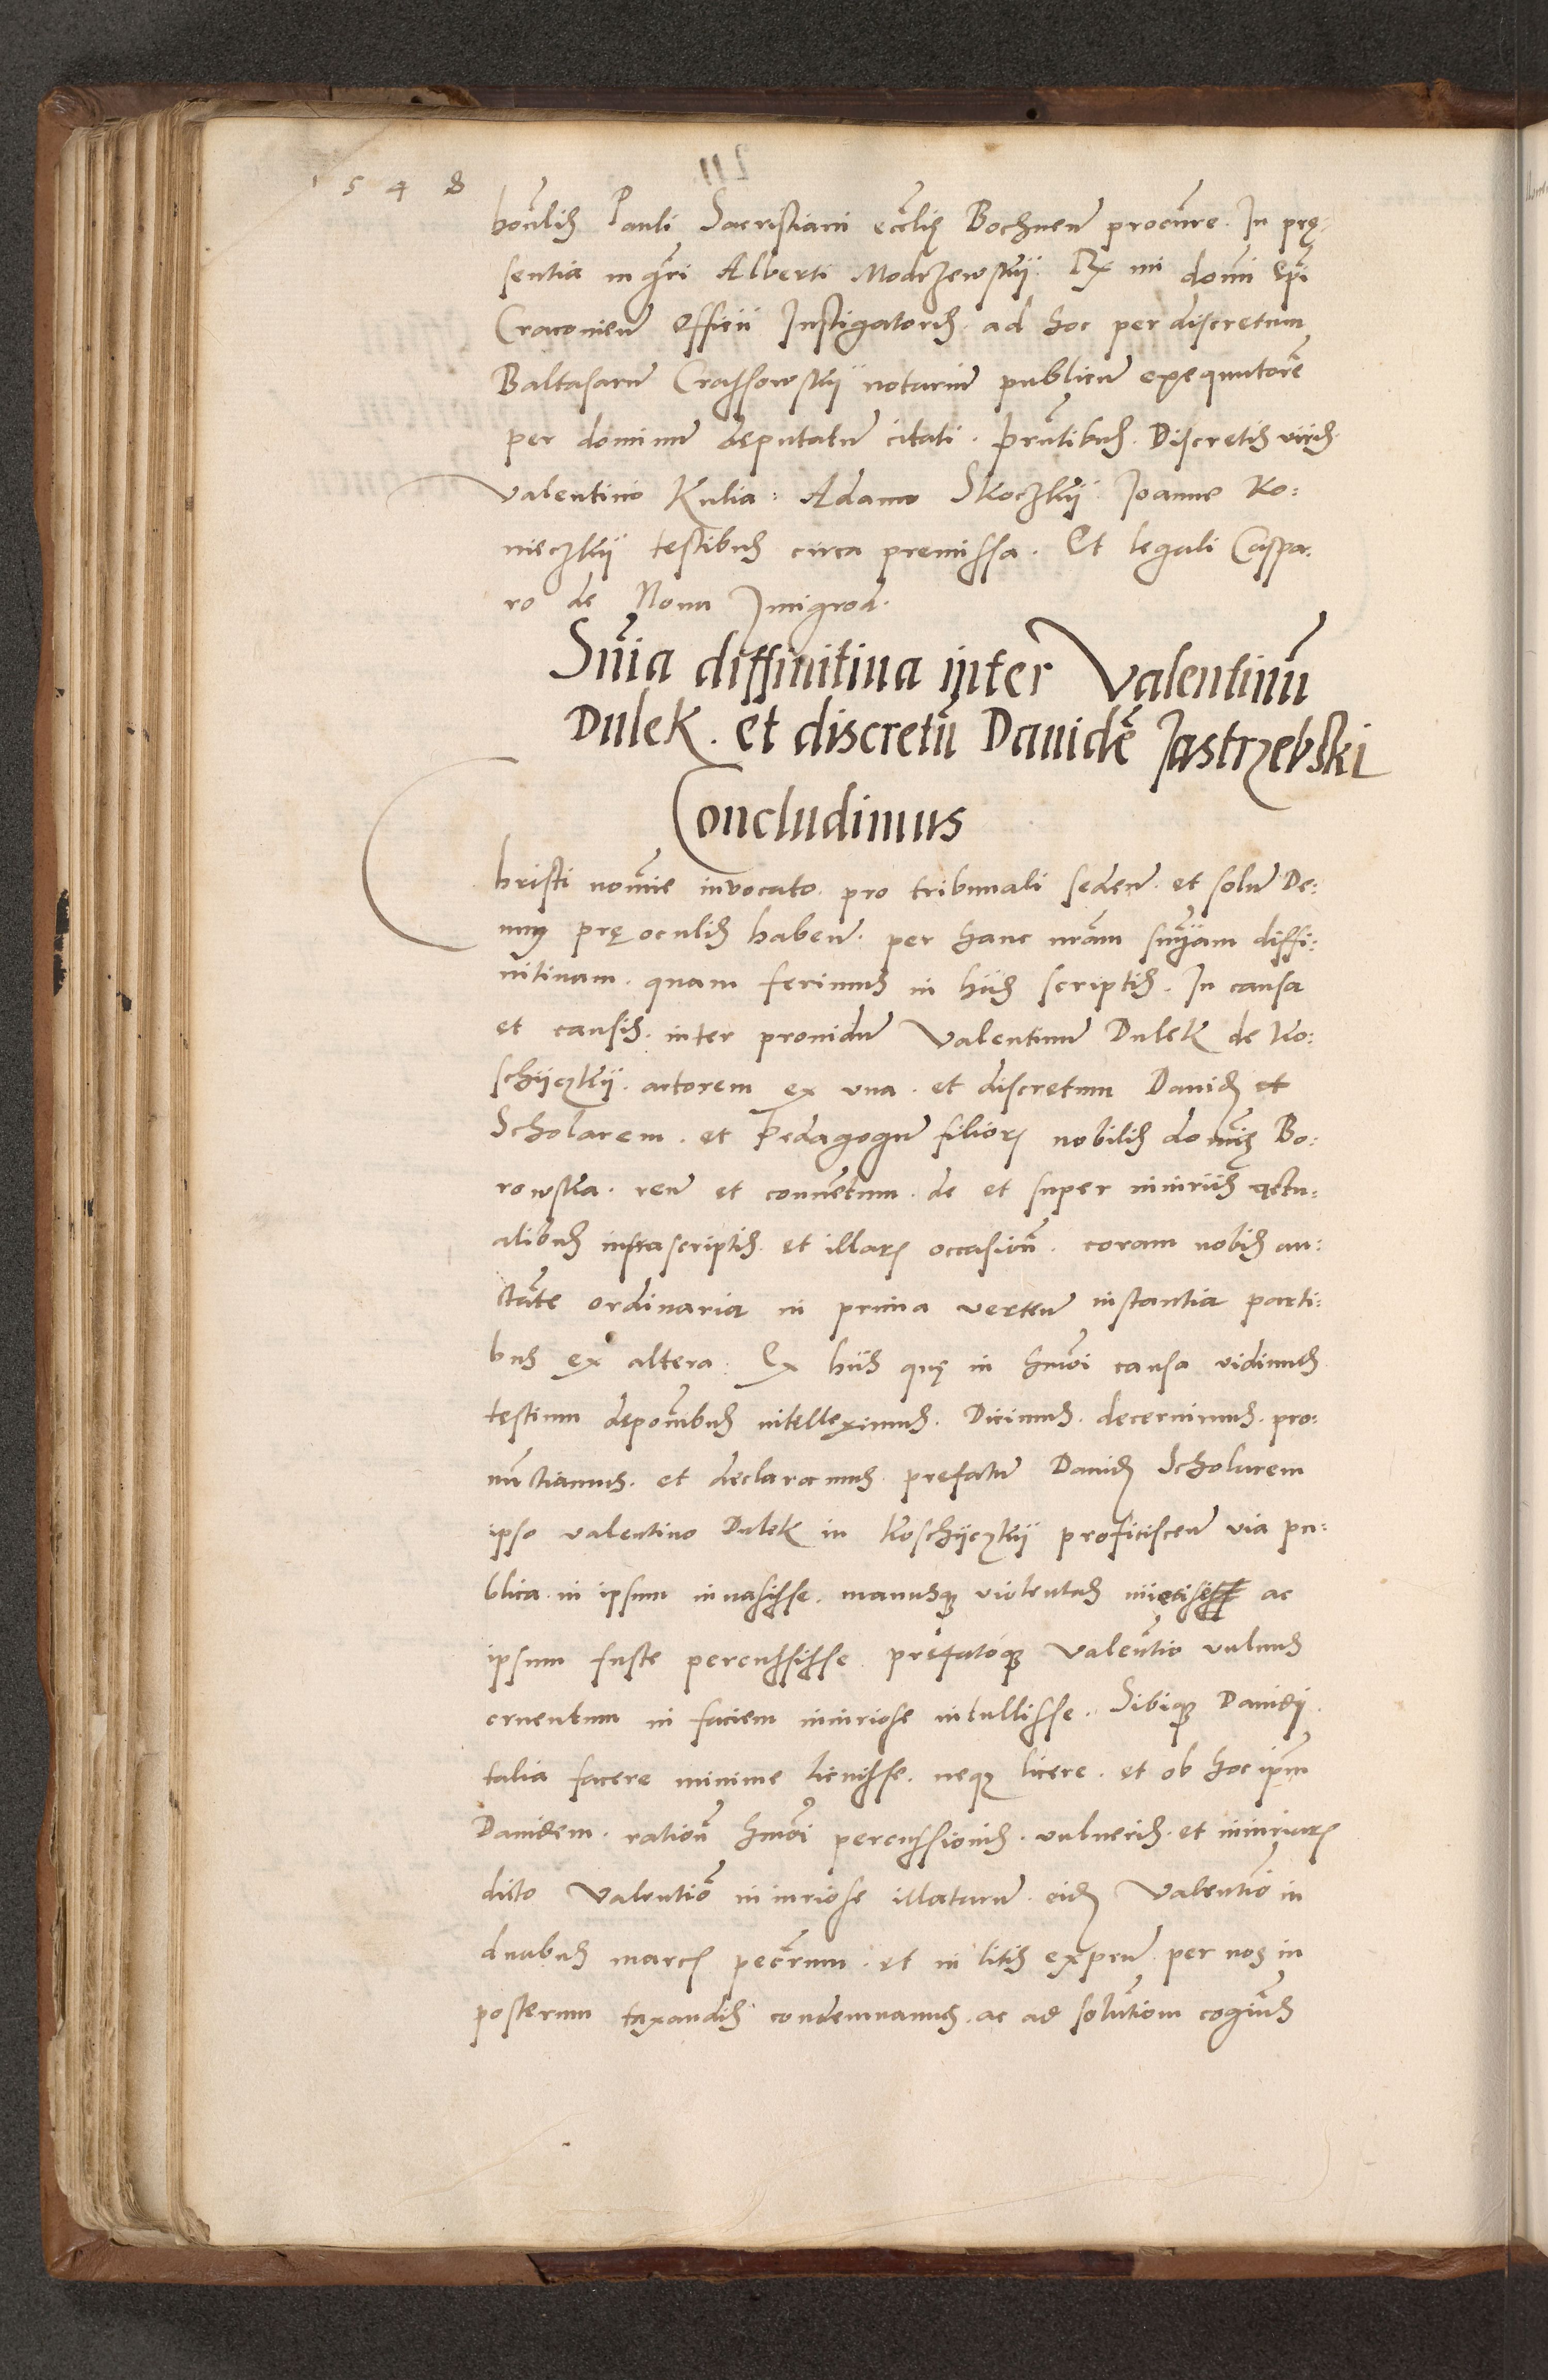 1 5 4 8
honlis Pauli Sacristiani ecclie Bochnen procure. In prę:
sentia mgri Alberti Modrzewskÿ. Rx mi domi Epi
Cracovien Officii Instigatoris ad hoc per discretum
Baltasarum Crassowskÿ notarium publicum exequutorē
per dominum deputatum citati. prntibus. Discretis viris
Valentino Kulia: Adamo Skoczkÿ. Joanne Ko:
nieczkÿ testibus circa premissa. Et legali Caspa:
ro de Nova Imigrod.
Snīa diffinitiua inter Valentinū
Dulek. et discretū Dauidē Jastrzebski
Concludimus
Christi nomie invocato. pro tribunali seden. et solum De:
um prę oculis haben. per hanc nram snīam diffi:
nitiuam. quam ferimus in hiis scriptis. In causa
et causis. inter prouidum Valentinum Dulek de Ko:
schÿczkÿ. actorem ex vna. et discretum Dauid et
Scholarem. et Pedagogum filior nobilis domię Bo:
rowska. reum et conuentum. de et super iniuriis actu:
alibus infrascriptis. et illar occasione. coram nobis au:
ctate ordinaria in prima verten instantia parti:
bus ex altera. Ex hiis quę in hmoi causa vidimus
testium deponibus intelleximus. Dicimus. decernimus. pro:
nunctiamus. et declaramus prefatum Dauid Scholarem
ipso Valentino Dulek in Koschÿczkÿ proficiscen via pu:
blica in ipsum inuasisse. manusq violentas iniecisse ac
ipsum fuste percussisse. prefatoq Valentio vulnus
cruentum in faciem iniuriose intullisse. Sibiq Dauidi
talia facere minime licuisse. neq licere. et ob hoc ipm
Dauidem. ratione hmoi percussionis. vulneris. et iniuriar
dicto Valentio iniuriose illatarum. eid Valentio in
duabus marcis pecrum. et in litis expen per nos in
posterum taxandis condemnamus. ac ad solutiom cogimus